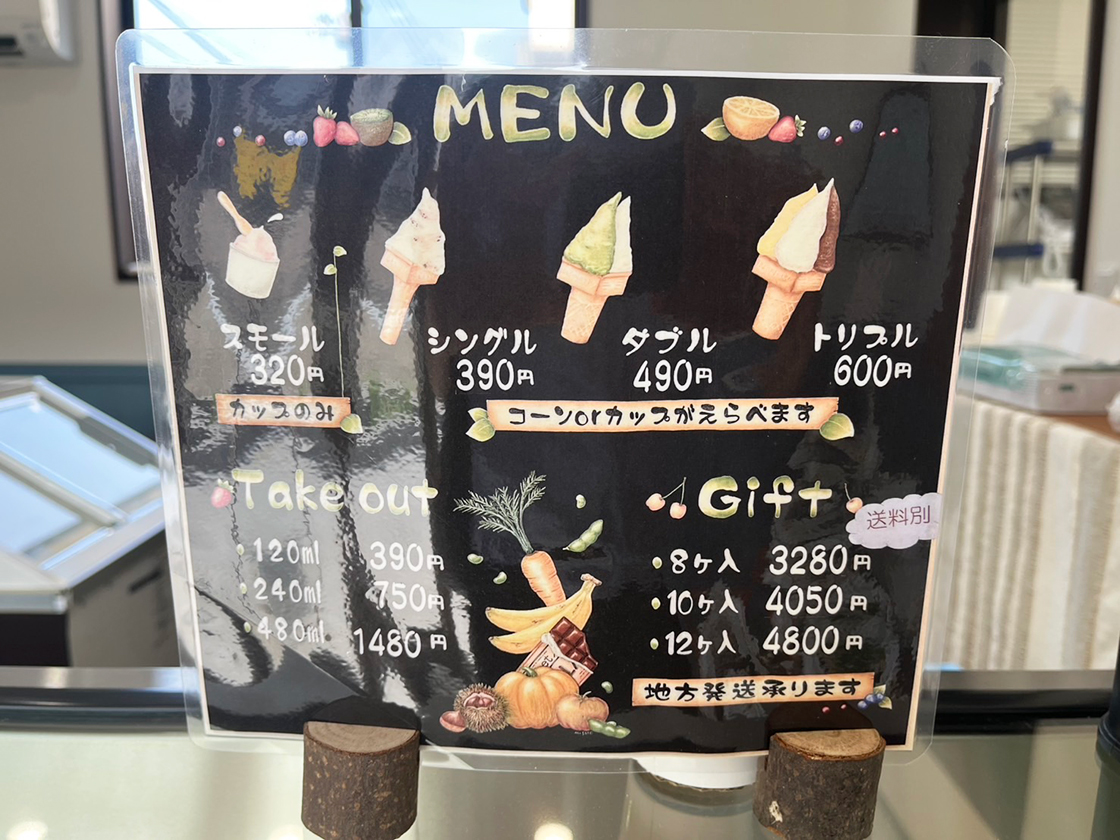 MENU
スモール
320円
カップのみ
シングル
390円
ダブル
490円
トリプル
600円
コーンorカップがえらべます
Take out
・120ml 390円
・240ml 750円
・480ml 1480円
Gift
送料別
・8ヶ入 3280円
・10ヶ入 4050円
・12ヶ入 4800円
地方発送承ります